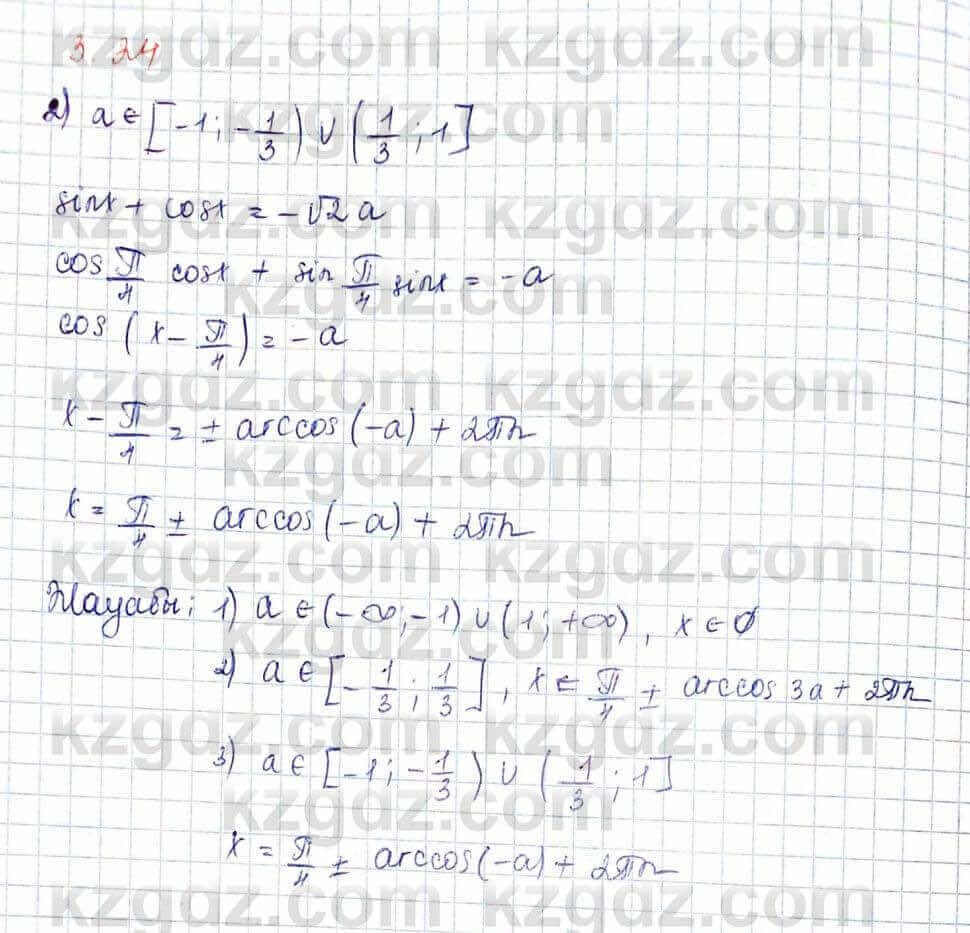 3.24
2) a ∈ [-1; -1/3) ∪ (1/3; 1]
sinx + cosx = -√2 a
cos π/4 cosx + sin π/4 sinx = -a
cos (x - π/4) = -a
x - π/4 = ± arccos(-a) + 2πn
x = π/4 ± arccos(-a) + 2πn
Жауабы: 1) a ∈ (-∞; -1) ∪ (1; +∞), x ∈ ∅
2) a ∈ [-1/3; 1/3], x ∈ π/4 ± arccos 3a + 2πn
3) a ∈ [-1; -1/3) ∪ (1/3; 1]
x = π/4 ± arccos(-a) + 2πn
kzgdz.com kzgdz.com
kzgdz.com
kzgdz.com kzgdz.com
kzgdz.com
kzgdz.com kzgdz.com
kzgdz.com
kzgdz.com kzgdz.com
kzgdz.com
kzgdz.com kzgdz.com
kzgdz.com
kzgdz.com kzgdz.com